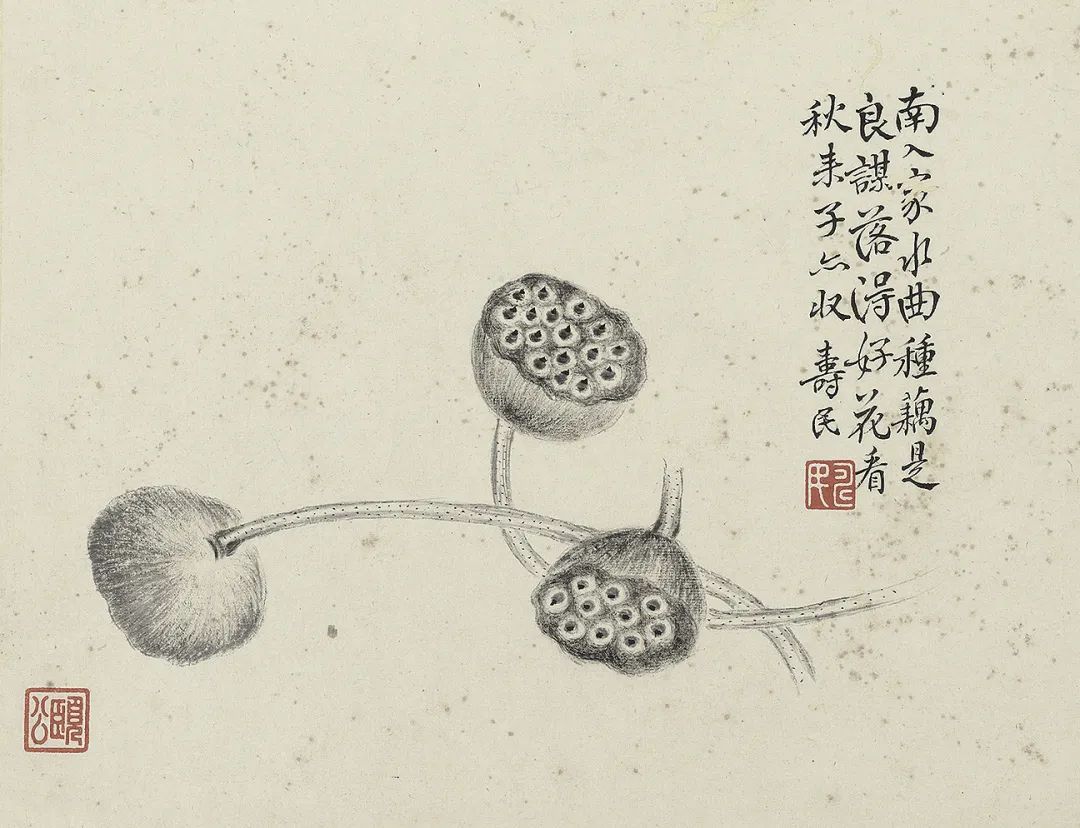 南人家水曲種藕是
良謀落得好花看
秋来子亦收 壽民
頤公